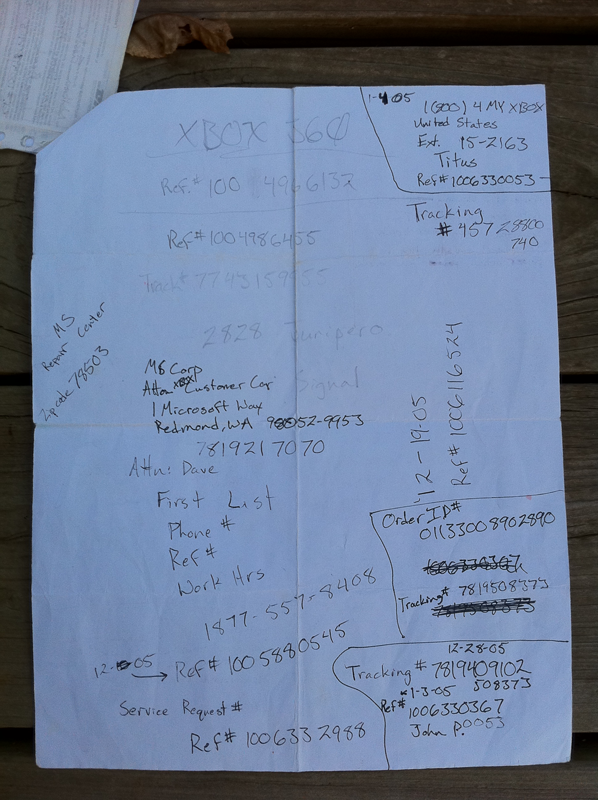 XBOX 360
Ref.# 100 14966132
Ref# 1004986455
Track# 7743159955
2828 Junipero
Signal
1-4-05
1(800) 4 MY XBOX
United States
Ext. 15-2163
Titus
Ref# 1006330053
Tracking
# 457 28800
740
MS
Repair Center
Zip code 78503
MS Corp
Attn: XBOX Customer Car
1 Microsoft Way
Redmond, WA 98052-9953
7819217070
Attn: Dave
First Last
Phone #
Ref#
Work Hrs
1877-557-8408
12-19-05
Ref# 1006116524
Order ID#
01133008902890
Tracking# 7819508373
12- -05
Ref# 1005880545
Service Request #
Ref# 1006332988
12-28-05
Tracking # 7819409102
1-3-05 508373
Ref# 1006330367
John P. 0053